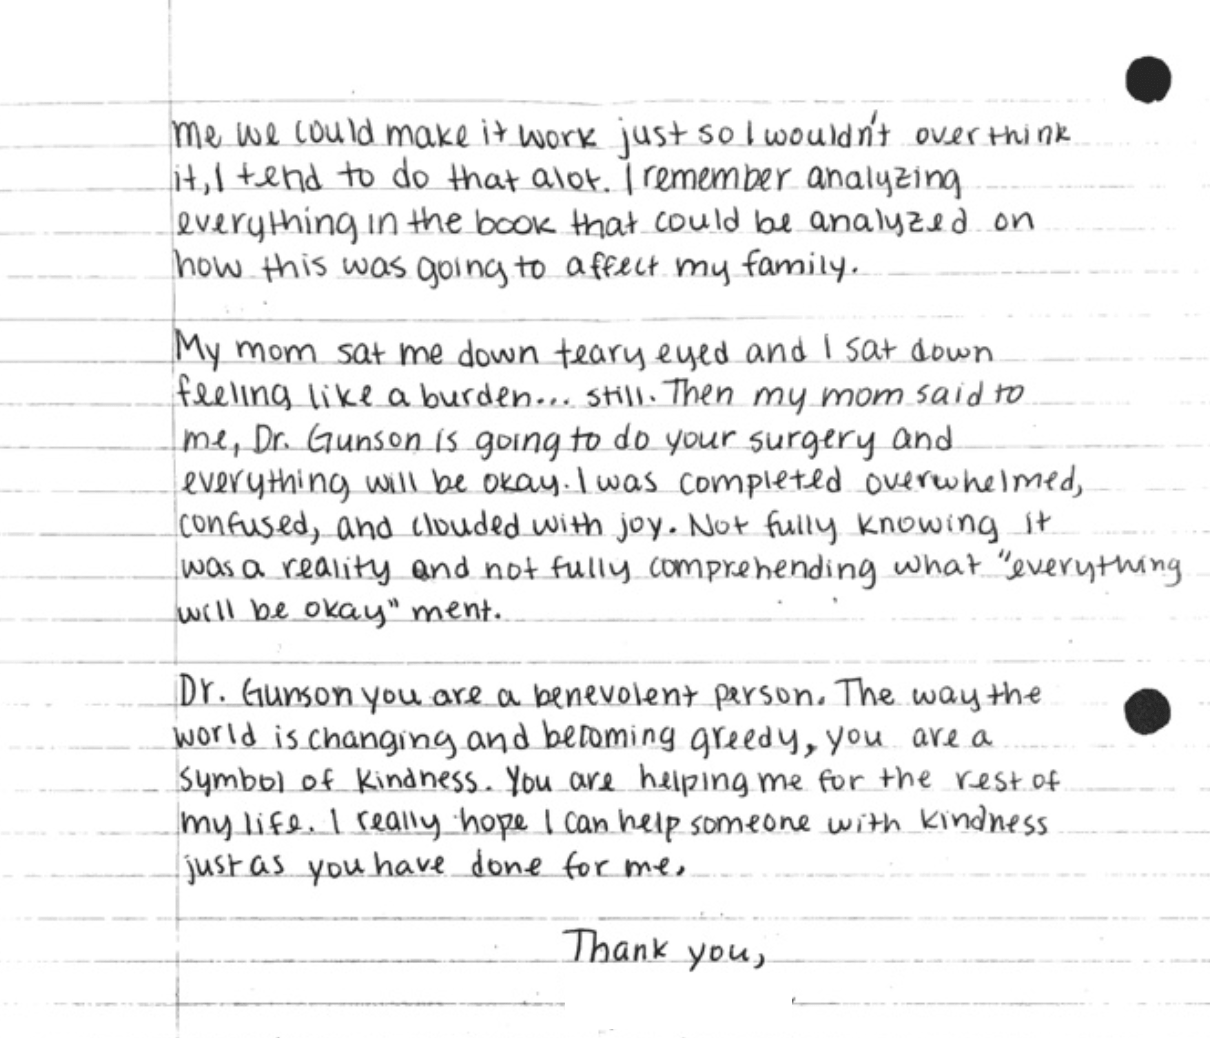 me we could make it work just so I wouldn't overthink
it, I tend to do that alot. I remember analyzing
everything in the book that could be analyzed on
how this was going to affect my family.
My mom sat me down teary eyed and I sat down
feeling like a burden... still. Then my mom said to
me, Dr. Gunson is going to do your surgery and
everything will be okay. I was completed overwhelmed,
confused, and clouded with joy. Not fully knowing it
was a reality and not fully comprehending what "everything
will be okay" ment.
Dr. Gunson you are a benevolent person. The way the
world is changing and becoming greedy, you are a
symbol of kindness. You are helping me for the rest of
my life. I really hope I can help someone with kindness
just as you have done for me.
Thank you,